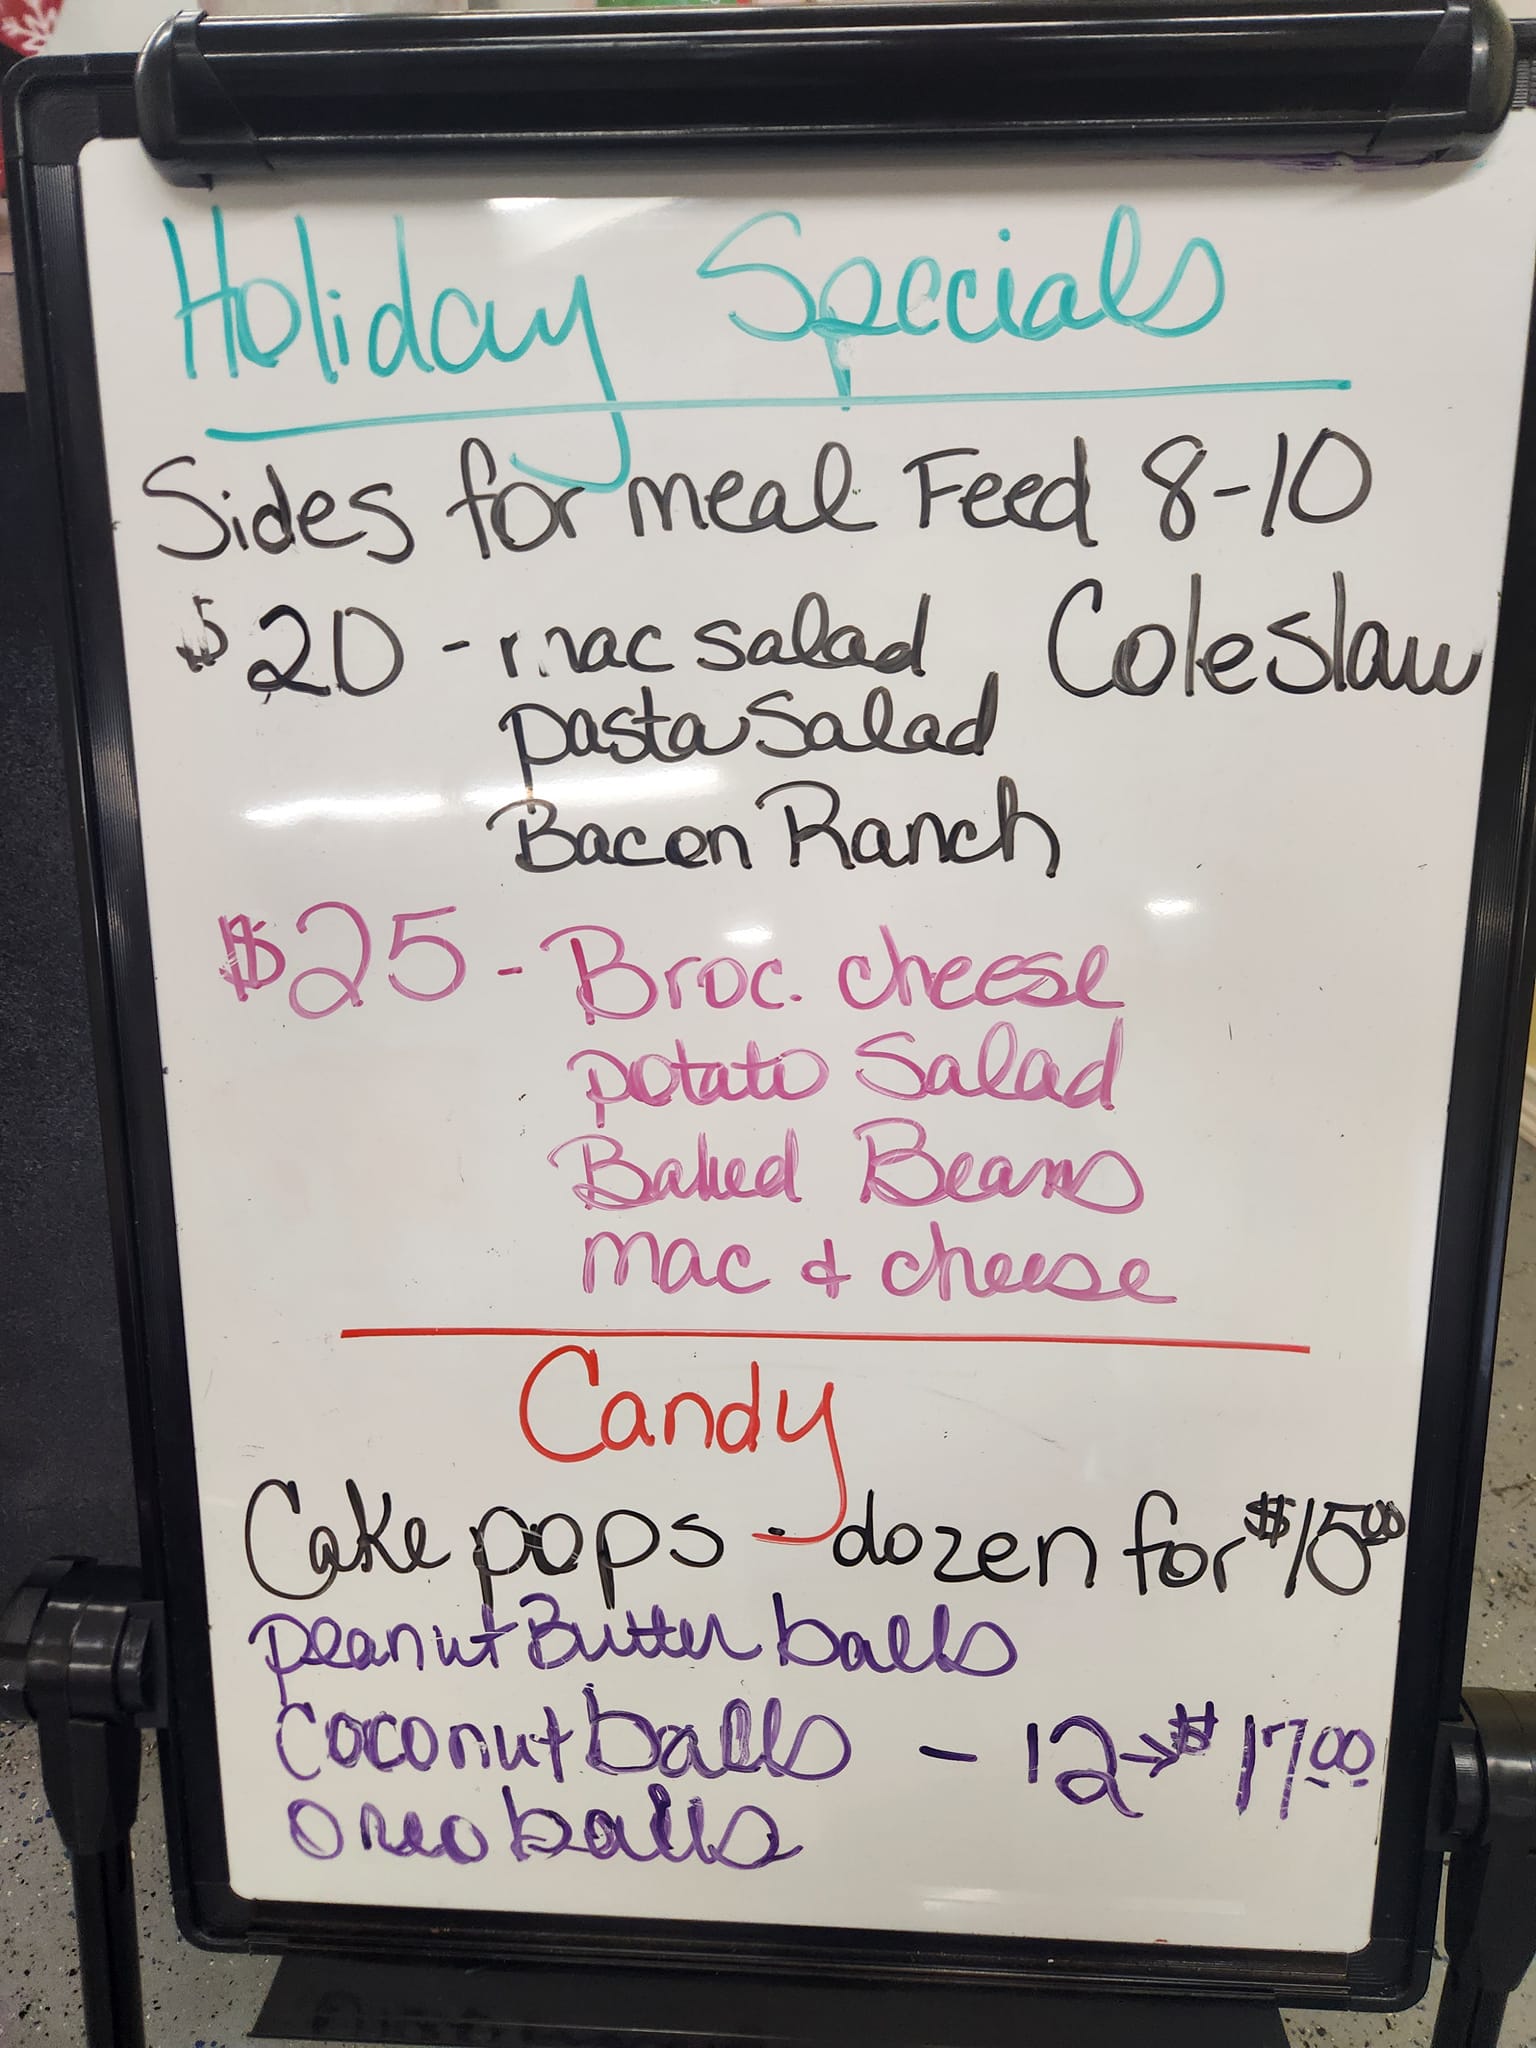 Holiday Specials
Sides for meal Feed 8-10
$20 - mac salad Coleslaw
pasta Salad
Bacon Ranch
$25 - Broc. cheese
potato Salad
Baked Beans
mac & cheese
Candy
Cake pops - dozen for $15.00
peanut Butter balls
Coconut balls - 12 → $17.00
oreo balls